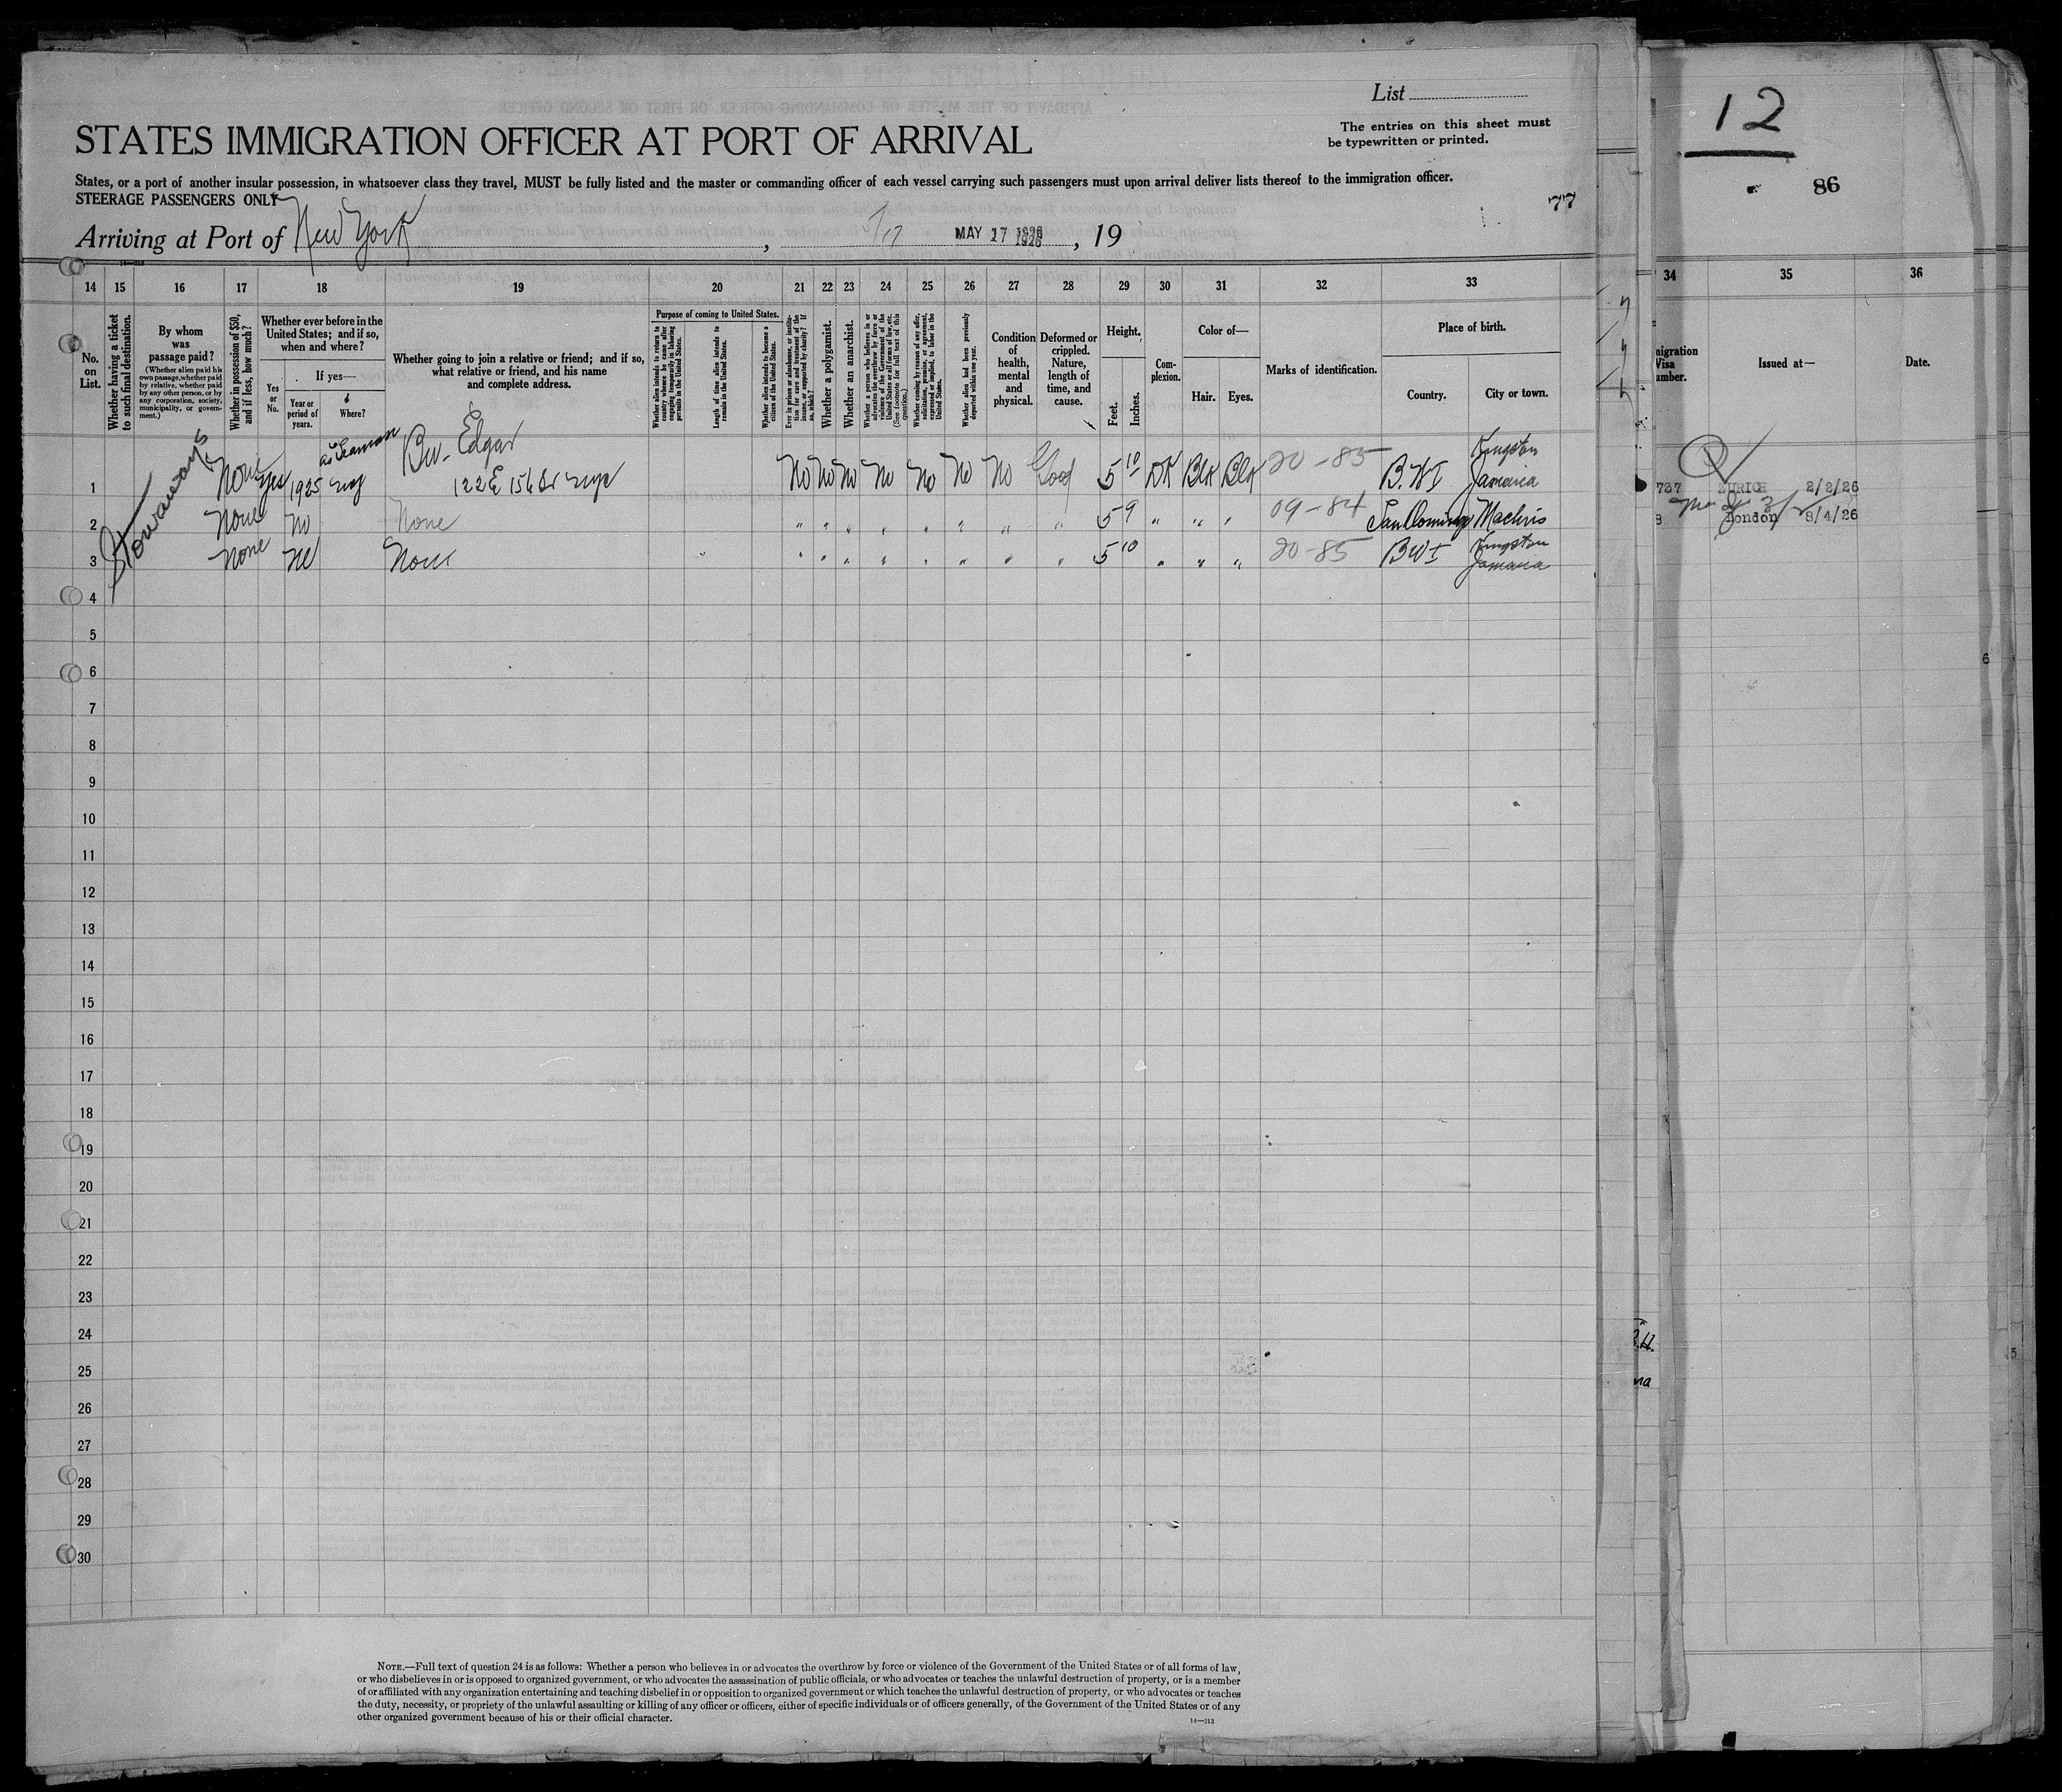 List
The entries on this sheet must
be typewritten or printed.
STATES IMMIGRATION OFFICER AT PORT OF ARRIVAL
States, or a port of another insular possession, in whatsoever class they travel, MUST be fully listed and the master or commanding officer of each vessel carrying such passengers must upon arrival deliver lists thereof to the immigration officer.
STEERAGE PASSENGERS ONLY
77
Arriving at Port of New York, 5/17 MAY 17 1926, 19
12
86
14 15 16 17 18 19 20 21 22 23 24 25 26 27 28 29 30 31 32 33 34 35 36
No. on List.
Whether having a ticket to such final destination.
By whom was passage paid?
(Whether alien paid his own passage, whether paid by relative, whether paid by any other person, or by any corporation, society, municipality, or government.)
Whether in possession of $50, and if less, how much?
Whether ever before in the United States; and if so, when and where?
Yes or No.
If yes—
Year or period of years.
Where?
Whether going to join a relative or friend; and if so, what relative or friend, and his name and complete address.
Purpose of coming to United States.
Whether alien intends to return to country whence he came after engaging temporarily in laboring pursuits in the United States.
Length of time alien intends to remain in the United States.
Whether alien intends to become a citizen of the United States.
Ever in prison or almshouse, or institution for care and treatment of the insane, or supported by charity? If so, which?
Whether a polygamist.
Whether an anarchist.
Whether a person who believes in or advocates the overthrow by force or violence of the Government of the United States or all forms of law, etc. (See footnote for full text of this question.)
Whether coming by reason of any offer, solicitation, promise, or agreement, expressed or implied, to labor in the United States.
Whether alien had been previously deported within one year.
Condition of health, mental and physical.
Deformed or crippled. Nature, length of time, and cause.
Height.
Feet. Inches.
Complexion.
Color of—
Hair. Eyes.
Marks of identification.
Place of birth.
Country. City or town.
migration Visa umber.
Issued at—
Date.
Stowaways
1 None Yes 1925 as seaman Bro- Edgar 122 E 156 St nyc No No No No No No No Good 5 10 DK Blk Blk 20-85 B.W.I Kingston Jamaica
2 None No None " " " " " " " " 5 9 " " " 09-84 San Domingo
3 None No None " " " " " " " " 5 10 " " " 20-85 BWI Kingston Jamaica
4
5
6
7
8
9
10
11
12
13
14
15
16
17
18
19
20
21
22
23
24
25
26
27
28
29
30
737 ZURICH 2/2/26
8 London 8/4/26
6
5
NOTE.—Full text of question 24 is as follows: Whether a person who believes in or advocates the overthrow by force or violence of the Government of the United States or of all forms of law,
or who disbelieves in or is opposed to organized government, or who advocates the assassination of public officials, or who advocates or teaches the unlawful destruction of property, or is a member
of or affiliated with any organization entertaining and teaching disbelief in or opposition to organized government or which teaches the unlawful destruction of property, or who advocates or teaches
the duty, necessity, or propriety of the unlawful assaulting or killing of any officer or officers, either of specific individuals or of officers generally, of the Government of the United States or of any
other organized government because of his or their official character.
14—213